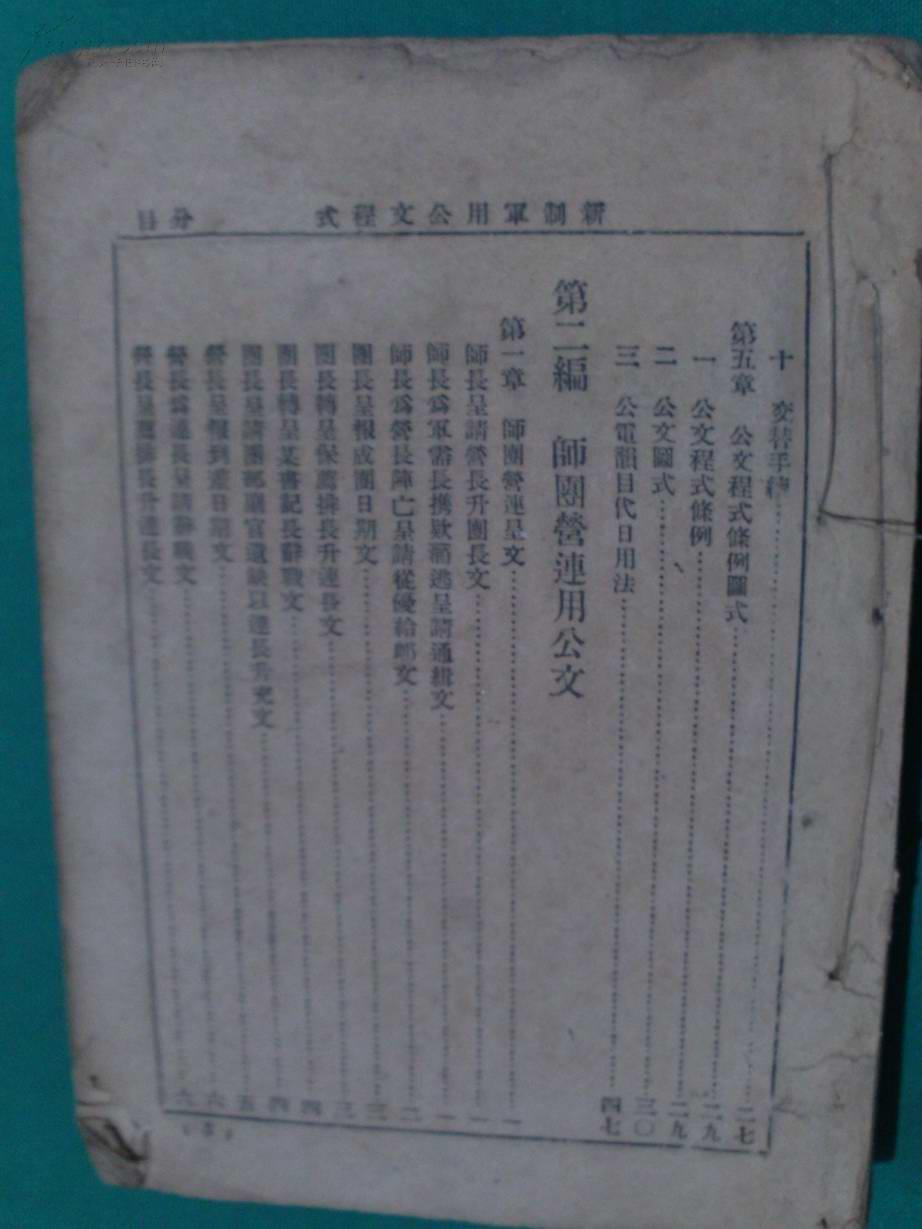 新制軍用公文程式 分目
十 交替手續 二七
第五章 公文程式條例圖式 二九
一 公文程式條例 二九
二 公文圖式 三〇
三 公電韻目代日用法 四七
第二編 師團營連用公文
第一章 師團營連呈文 一
師長呈請營長升團長文 一
師長爲軍需長携欵潛逃呈請通緝文 一
師長爲營長陣亡呈請從優給卹文 二
團長呈報成團日期文 三
團長轉呈保薦排長升連長文 三
團長轉呈某書記長辭職文 四
團長呈請團部副官遺缺以連長升充文 四
營長呈報到差日期文 五
營長爲連長呈請辭職文 六
營長呈薦排長升連長文 六